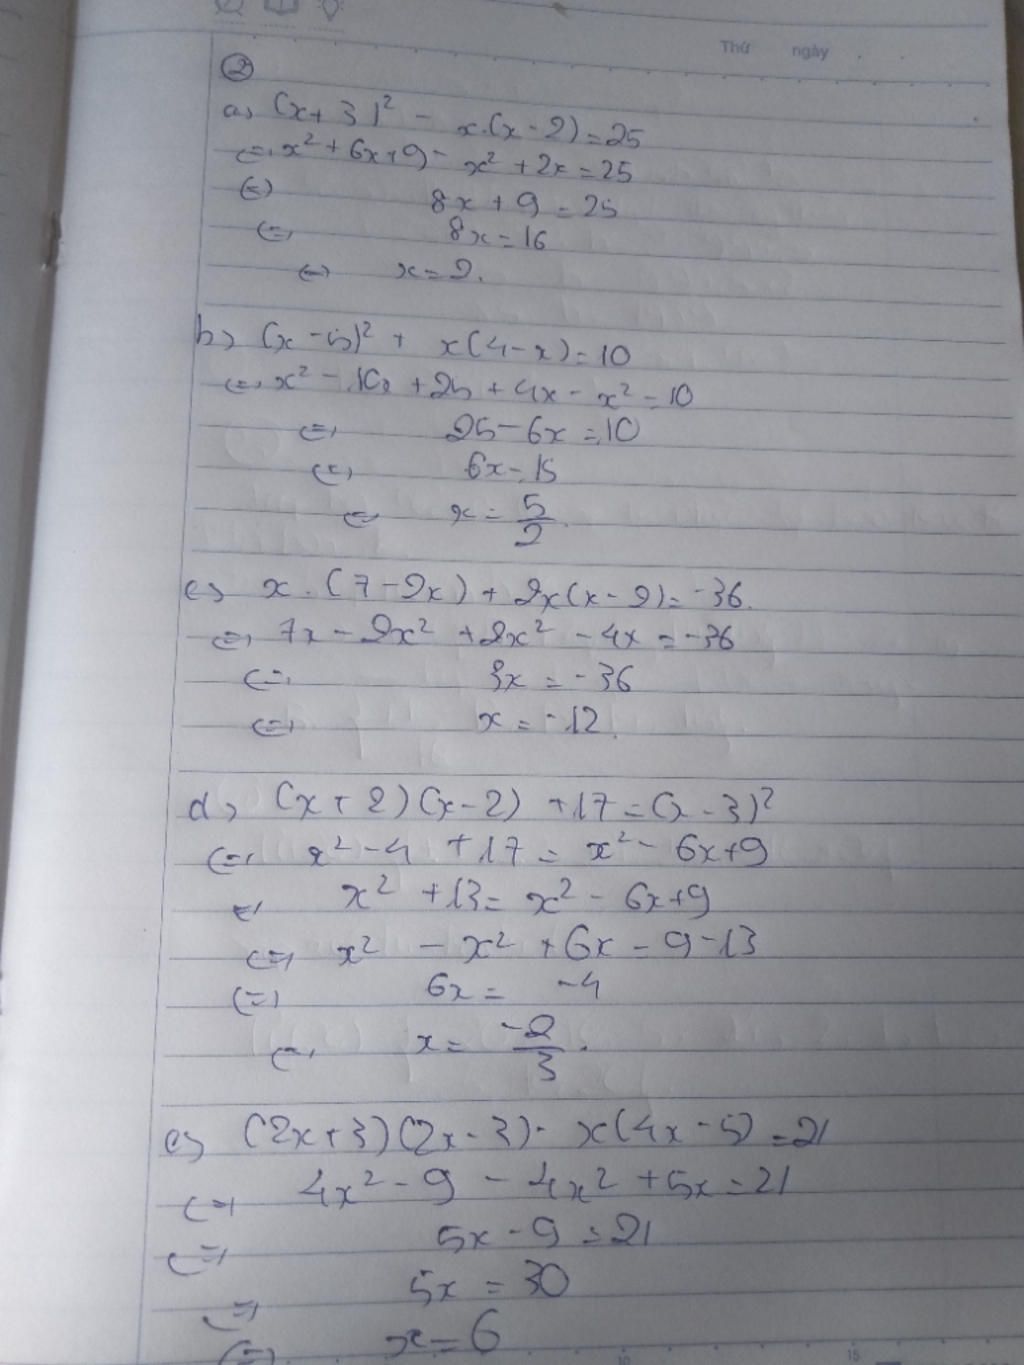 Thứ ngày
②
a, (x+3)² - x.(x-2)=25
<=> x² + 6x+9 - x² +2x=25
<=> 8x + 9 = 25
<=> 8x=16
<=> x=2.
b, (x-5)² + x(4-x)=10
<=> x² - 10x +25 + 4x - x² = 10
<=> 25-6x=10
<=> 6x=15
<=> x = 5/2.
c, x.(7-2x)+2x(x-2)=-36.
<=> 7x-2x² +2x² -4x = -36
<=> 3x = -36
<=> x = -12.
d, (x+2)(x-2) +17=(x-3)²
<=> x²-4 +17 = x² - 6x+9
<=> x² +13= x² - 6x+9
<=> x² - x² +6x = 9-13
<=> 6x= -4
<=> x= -2/3.
e, (2x+3)(2x-3)- x(4x-5) =21
<=> 4x²-9 - 4x² +5x=21
<=> 5x-9=21
<=> 5x=30
<=> x=6
10 15